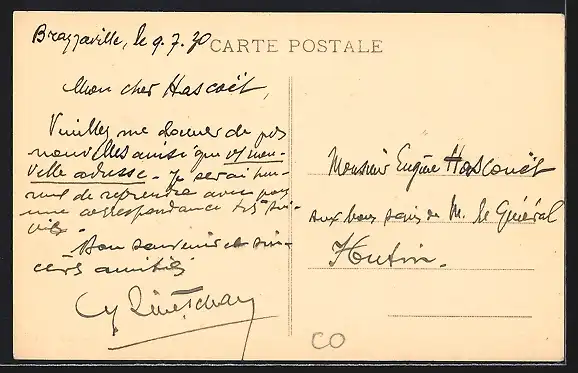 Brazzaville, le 9.7.30
CARTE POSTALE
Mon cher Hascoët,
Veuillez me donner de vos
nouvelles ainsi que v/ nou-
velle adresse. Je serai heu-
reux de reprendre avec vous
une correspondance très sui-
vie.
Bon souvenir et sin-
cères amitiés
Monsieur Eugène Hascouët
aux bons soins de M. le Général
Hutin.
CO